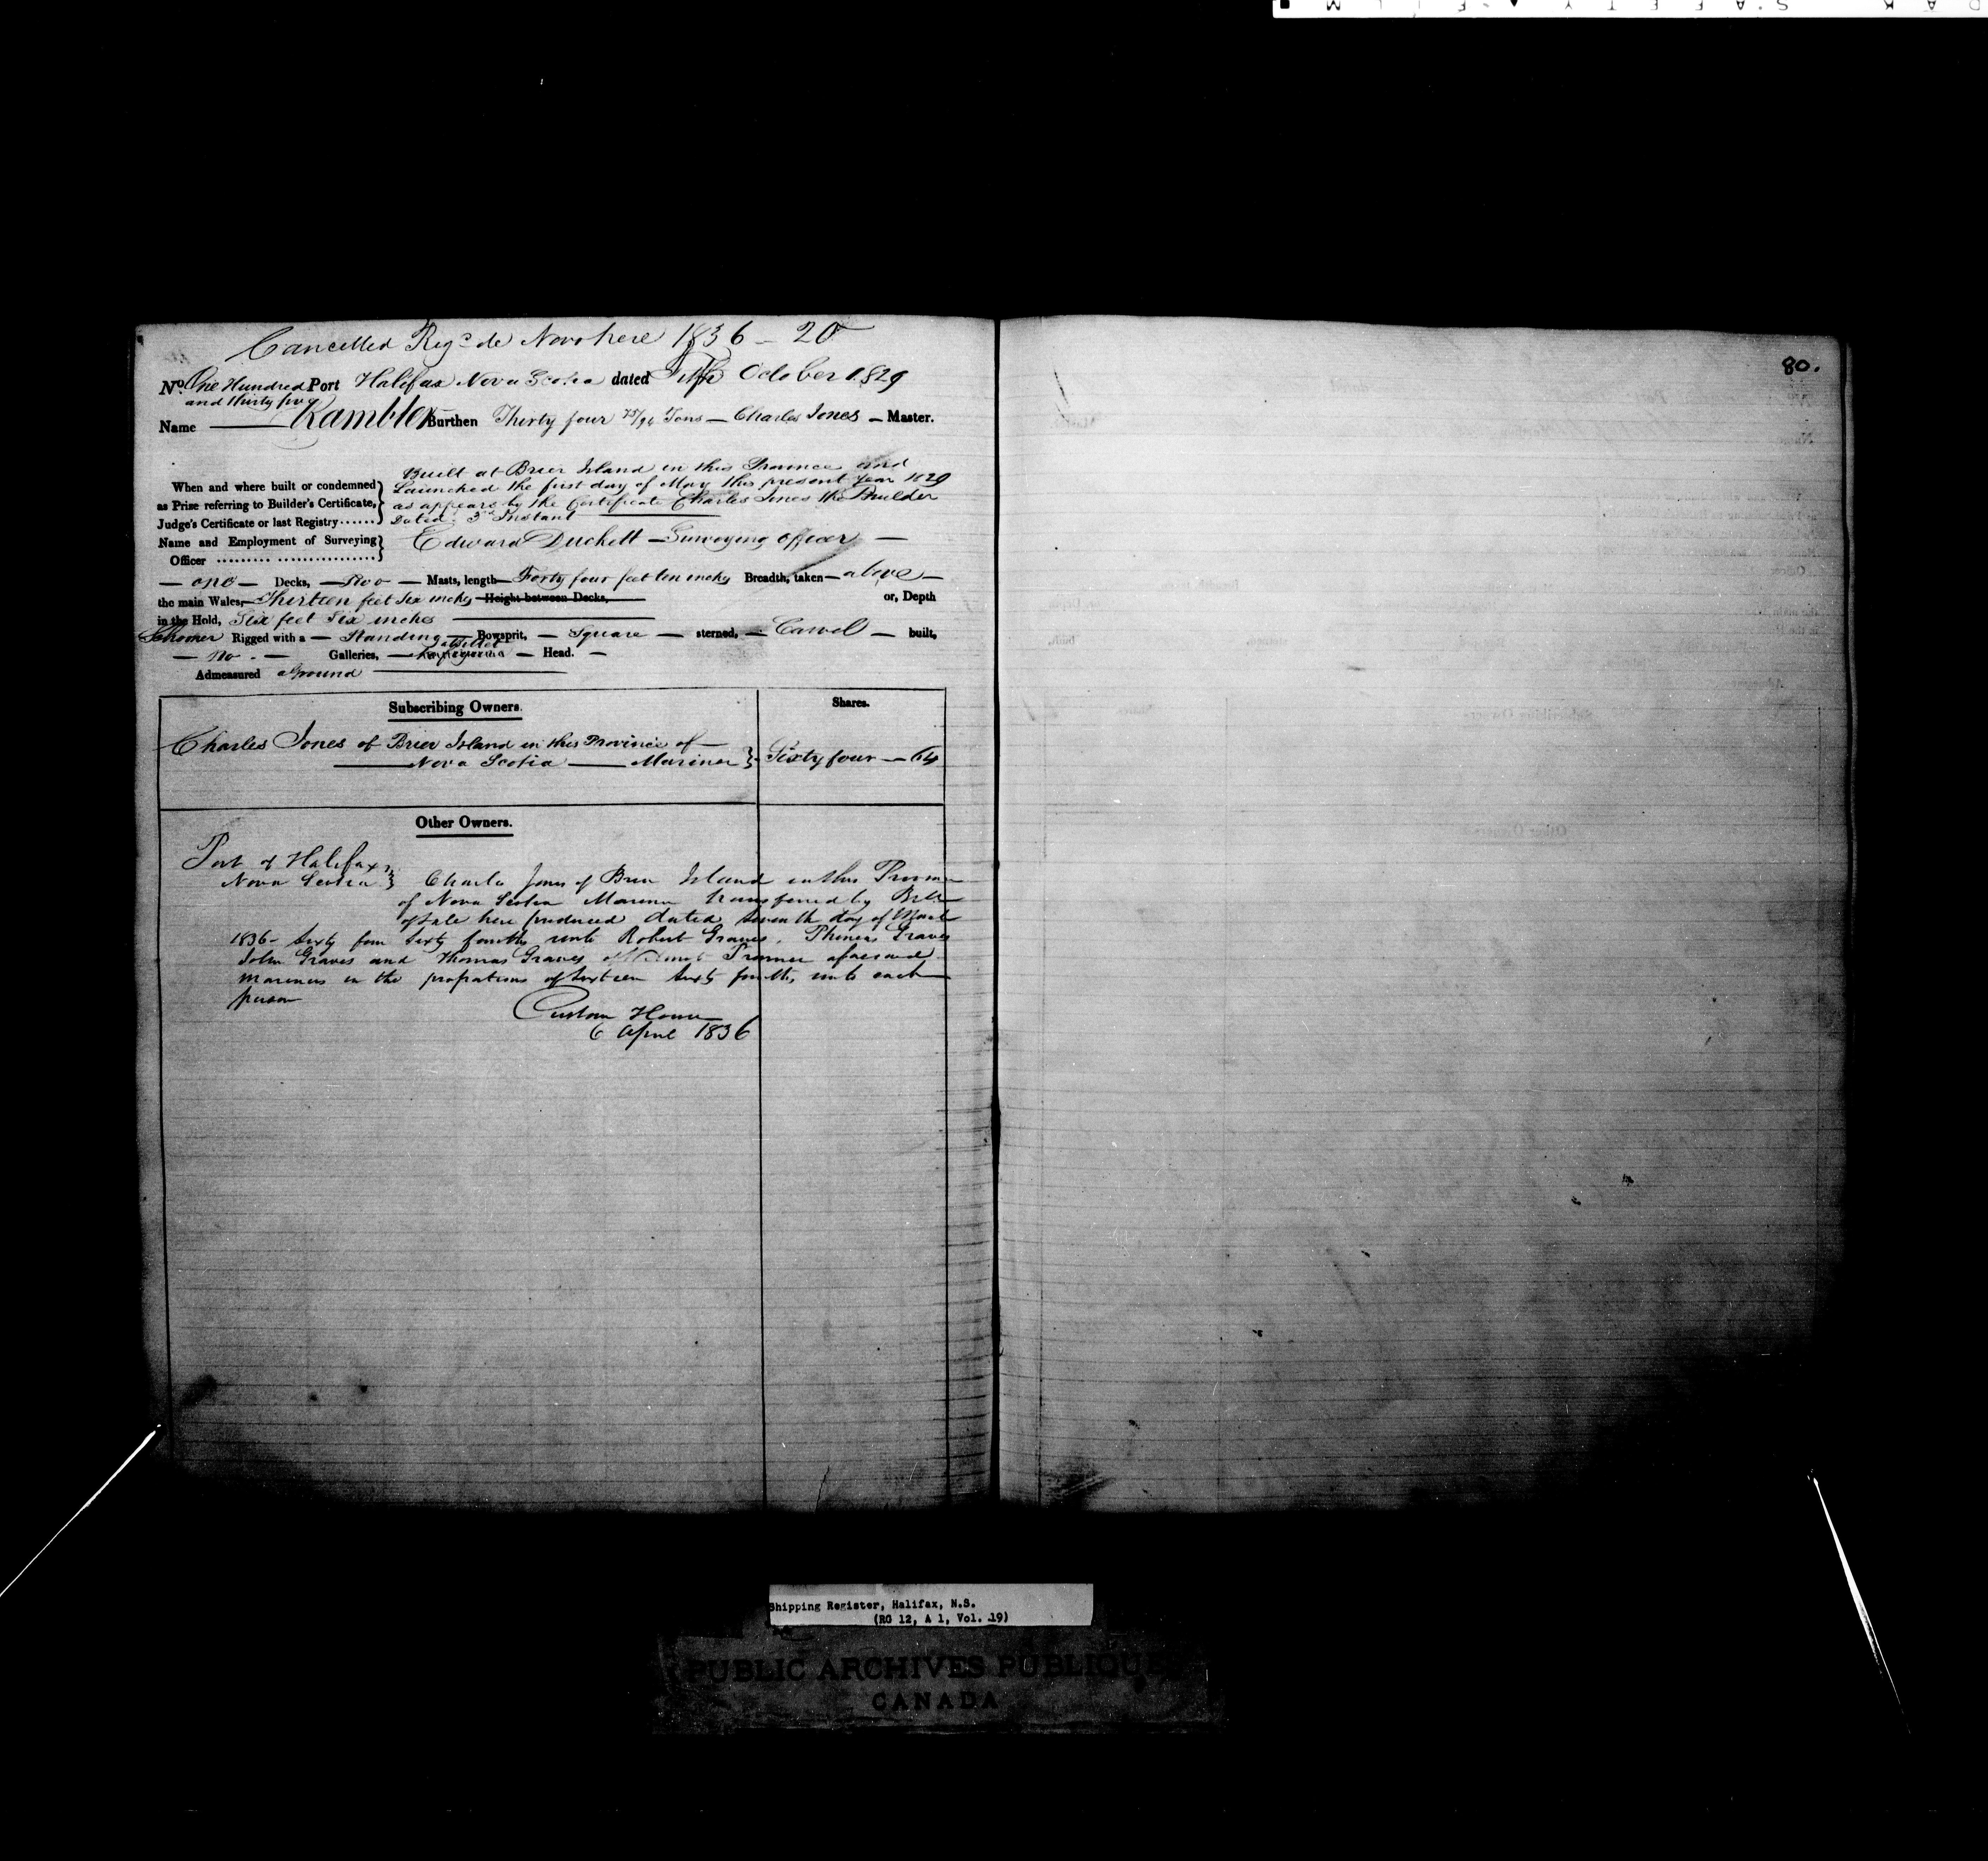 Cancelled Reg.d de Novo here 1836 - 20
80.
No. One Hundred and thirty five Port Halifax Nova Scotia dated Fifth October 1829
Name Rambler Burthen Thirty four 75/94 Tons — Charles Jones — Master.
Built at Brier Island in this Province and
When and where built or condemned Launched the first day of May this present Year 1829
as Prize referring to Builder's Certificate, as appears by the Certificate Charles Jones the Builder
Judge's Certificate or last Registry...... Dated 3d Instant
Name and Employment of Surveying Edward Duckett — Surveying officer —
Officer
— one — Decks, — Two — Masts, length — Forty four feet ten inches Breadth, taken — above —
the main Wales, — Thirteen feet Six inches — Height between Decks, or, Depth
in the Hold, Six feet Six inches
Schooner Rigged with a — Standing — Bowsprit, — Square — sterned, — Carvel — built,
— no — Galleries, — a Billet — Head. —
Admeasured aground
Subscribing Owners. Shares.
Charles Jones of Brier Island in this Province of —
Nova Scotia — Mariner Sixty four — 64
Other Owners.
Port of Halifax
Nova Scotia Charles Jones of Brier Island in this Province
of Nova Scotia Mariner transferred by Bill
of Sale here produced dated seventh day of March
1836 - Sixty four Sixty fourths unto Robert Graves, Phineas Graves
John Graves and Thomas Graves of Province aforesaid
Mariners in the proportions of Sixteen Sixty fourths unto each
person
Custom House
6 April 1836
Shipping Register, Halifax, N.S.
(RG 12, A 1, Vol. 19)
PUBLIC ARCHIVES PUBLIQUES
CANADA